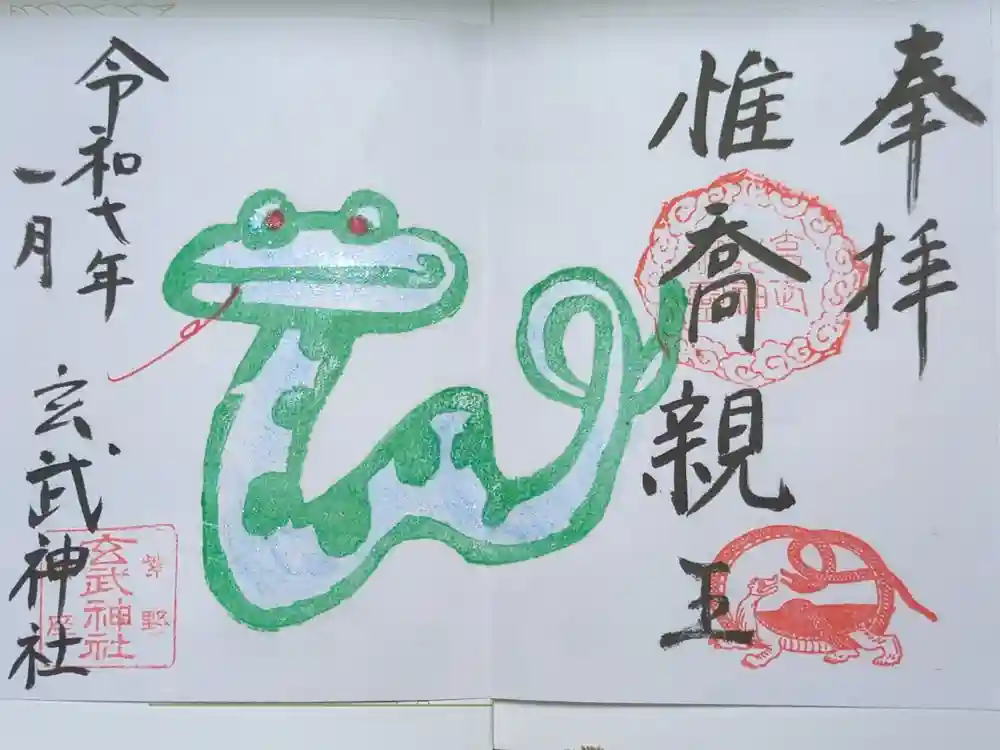 奉拝
惟喬親王
令和七年
一月
玄武神社
玄武神社
紫野